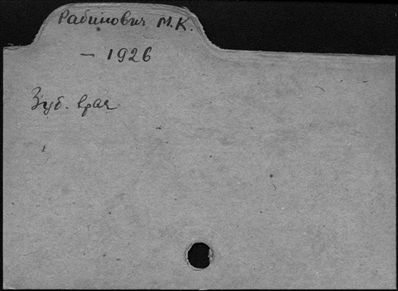 Рабинович М.К.
– 1926
Зуб. врач